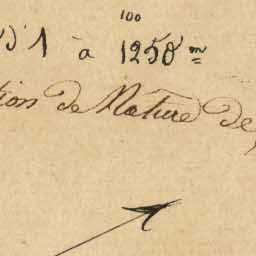 100
d' 1 à 1250 m
tion de Nature de